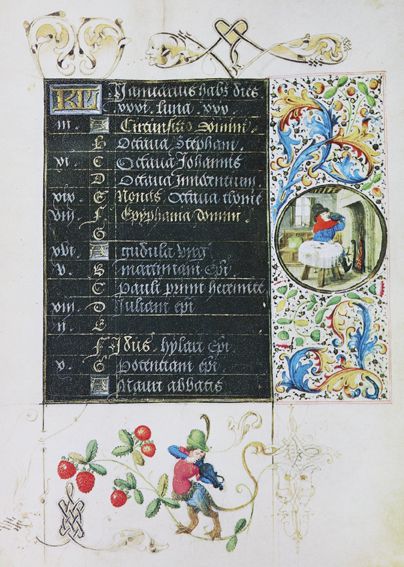 KL Januarius habet dies
xxxi. luna. xxx.
iii. A Circuncisio domini.
B Octava Stephani.
xi. C Octava Johannis
D Octava Innocentium.
xix. E Nonas Octava
viii. F Epyphania domini.
G
xvi. A gudula virg
v. B maximiani epi.
C Pauli primi heremite
xiii. D Iuliani epi
ii. E
F Idus. hylarii epi.
G epi.
A Mauri abbatis